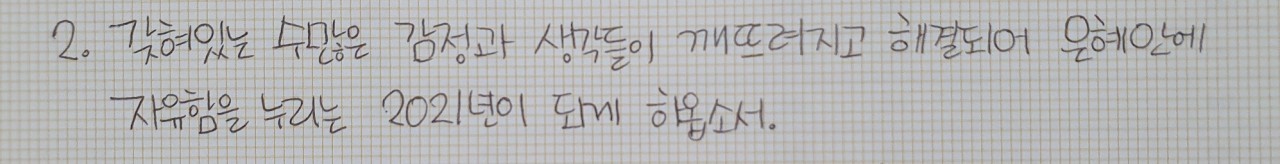 2. 갖혀있는 수많은 감정과 생각들이 깨뜨려지고 해결되어 은혜안에
자유함을 누리는 2021년이 되게 하옵소서.